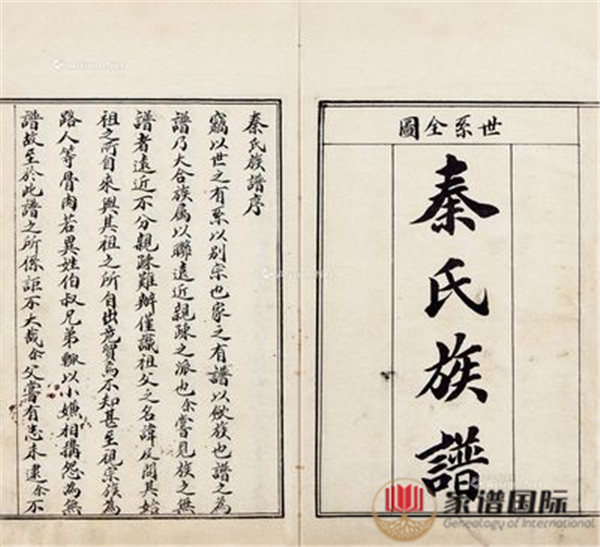 世系全圖
秦氏族譜
秦氏族譜序
竊以世之有系以別宗也家之有譜以收族也譜之為
譜乃大合族属以聯遠近親疎之派也余嘗見族之無
譜者遠近不分親疎難辨僅識祖父之名諱及問其始
祖之所自來與其祖之所自出茫貿焉不知甚至視宗族為
路人等骨肉若異姓伯叔兄弟輙以小嫌相搆怨為無
譜故至於此譜之所係詎不大哉余父嘗有志未逮余不
家谱国际
Genealogy of International